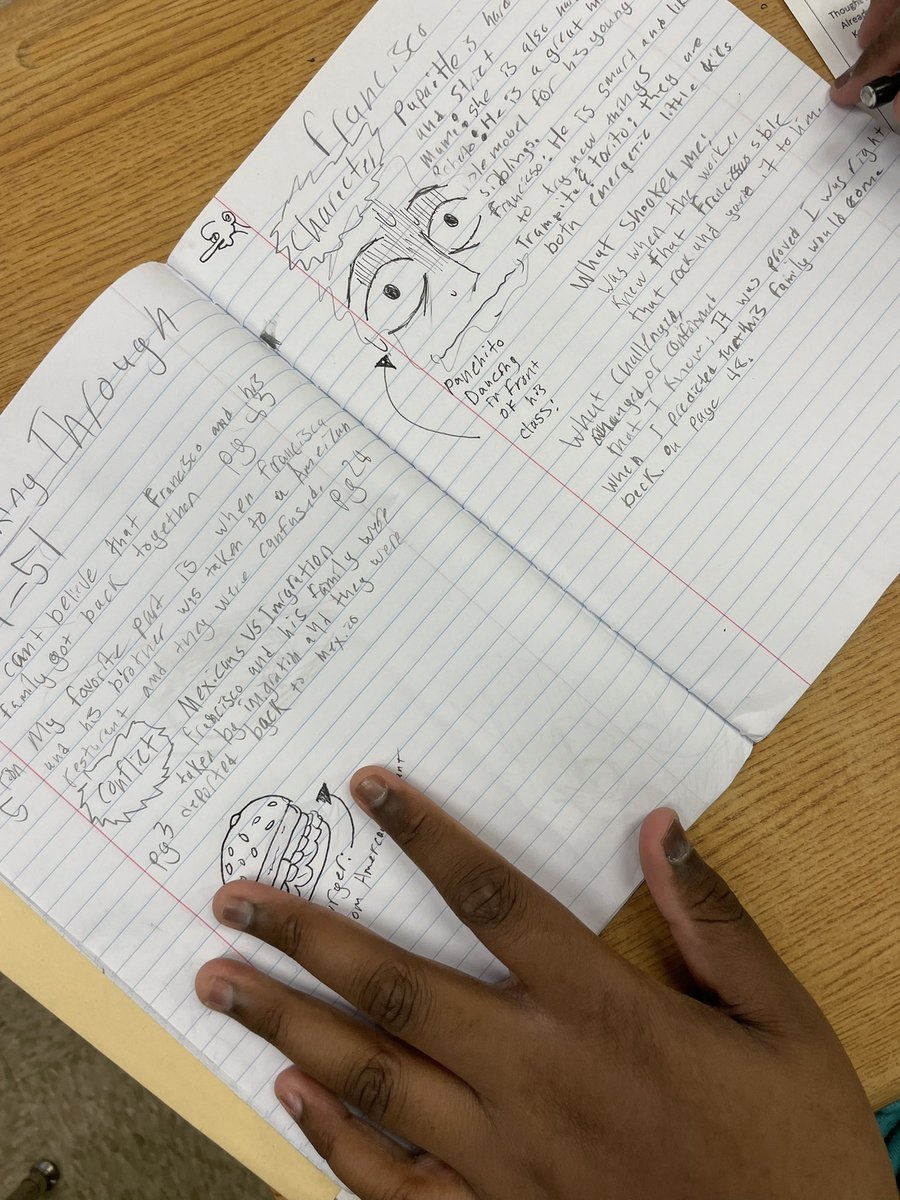 Through
-51
can't belive that Francisco and his
family got back together pg 53
My favorite part is when Francisco
and his brother was taken to a
resturant and they were confused. pg 24
Conflict
Mexicans vs Imigration
Francisco and his family were
taken by imigration and they were
pg 3 deported back to mexico
Francisco
Character
Papa: He is hard
and strict
Mami: she is also
Roberto: He is a great
role model for his young
siblings.
Francisco: He is smart and
to try new things
Trampita & Torito: they are
both energetic little kids
Panchito
Dancing
in Front
of his
class:
What shooket me:
Was when the
knew that
that rock and gave it to him
What challenged,
changed, or
that I know: It was proved I was right
when I predicted family would come
back. on page 48.
Thought